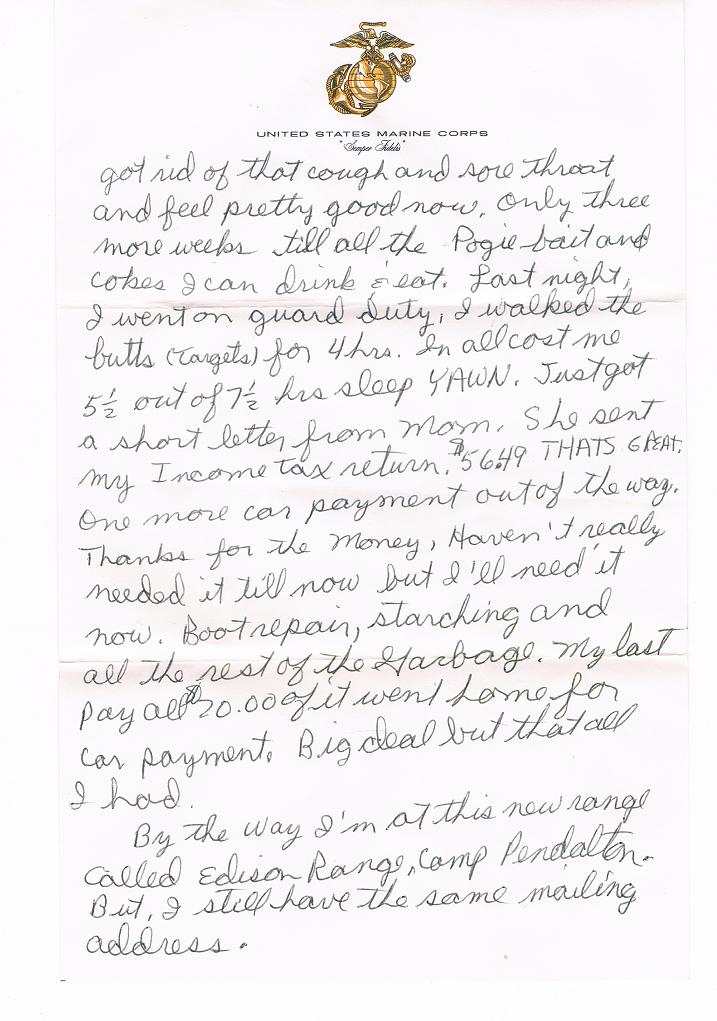 UNITED STATES MARINE CORPS
"Semper Fidelis"
got rid of that cough and sore throat
and feel pretty good now. Only three
more weeks till all the Pogie bait and
cokes I can drink & eat. Last night,
I went on guard duty, I walked the
butts (Targets) for 4 hrs. In all cost me
5 1/2 out of 7 1/2 hrs sleep YAWN. Just got
a short letter from Mom. She sent
my Income tax return. $56.49 THATS GREAT.
One more car payment out of the way.
Thanks for the Money, Haven't really
needed it till now but I'll need it
now. Boot repair, starching and
all the rest of the Garbage. My last
Pay all $20.00 of it went home for
car payment. Big deal but that all
I had.
By the way I'm at this new range
called Edison Range, Camp Pendalton.
But, I still have the same mailing
address.